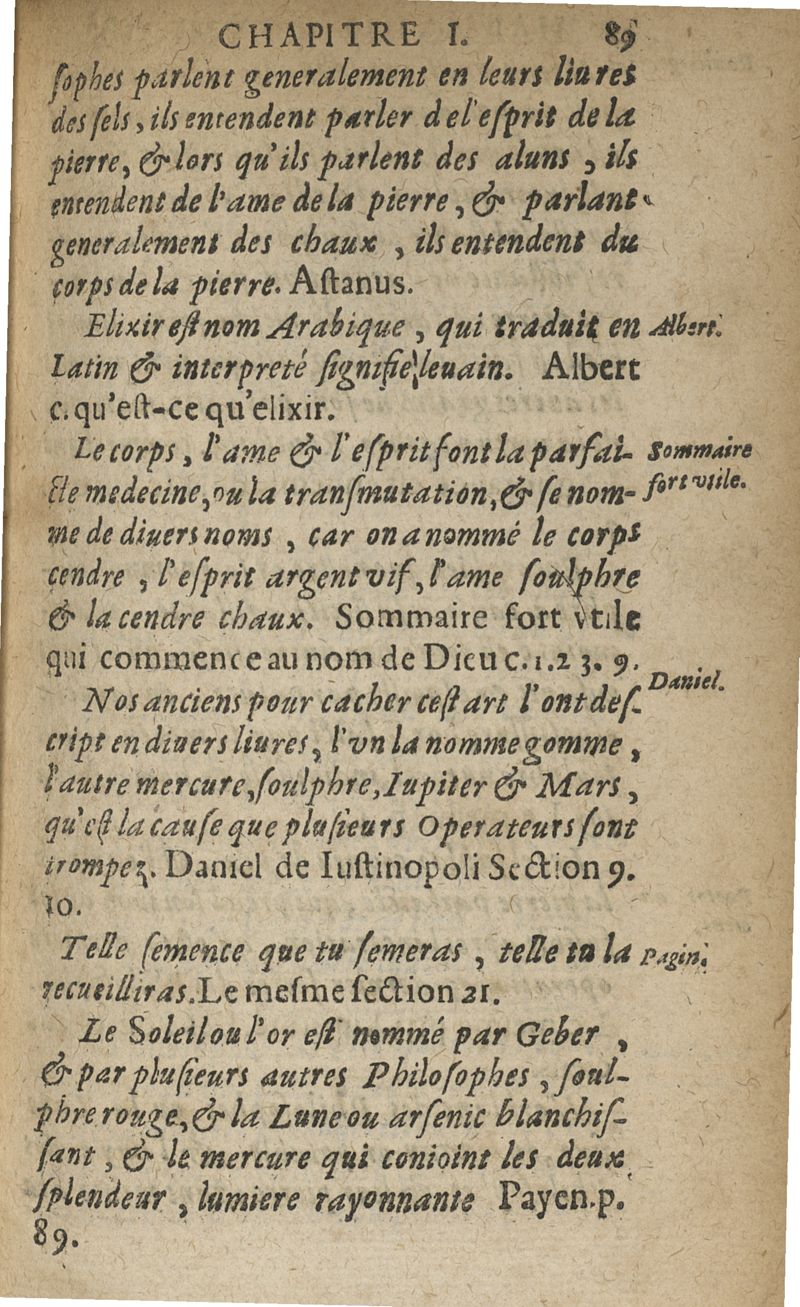 CHAPITRE I. 89
ſophes parlent generalement en leurs liures
des ſels, ils entendent parler de l'eſprit de la
pierre, & lors qu'ils parlent des aluns, ils
entendent de l'ame de la pierre, & parlant
generalement des chaux, ils entendent du
corps de la pierre. Aſtanus.
Elixir eſt nom Arabique, qui traduit en Albert.
Latin & interpreté ſignifie leuain. Albert
c. qu'eſt-ce qu'elixir.
Le corps, l'ame & l'eſprit font la parfai- Sommaire
cte medecine, ou la tranſmutation, & ſe nom- fort vtile.
me de diuers noms, car on a nommé le corps
cendre, l'eſprit argent vif, l'ame ſoulphre
& la cendre chaux. Sommaire fort vtile
qui commence au nom de Dieu c. 1. 2 3. 9.
Nos anciens pour cacher ceſt art l'ont deſ- Daniel.
cript en diuers liures, l'vn la nomme gomme,
l'autre mercure, ſoulphre, Iupiter & Mars,
qu'eſt la cauſe que pluſieurs Operateurs ſont
trompez. Daniel de Iuſtinopoli Section 9.
10.
Telle ſemence que tu ſemeras, telle tu la Pagin.
recueilliras. Le meſme ſection 21.
Le Soleil ou l'or eſt nommé par Geber,
& par pluſieurs autres Philoſophes, ſoul-
phre rouge, & la Lune ou arſenic blanchiſ-
ſant, & le mercure qui conioint les deux
ſplendeur, lumiere rayonnante Payen. p.
89.